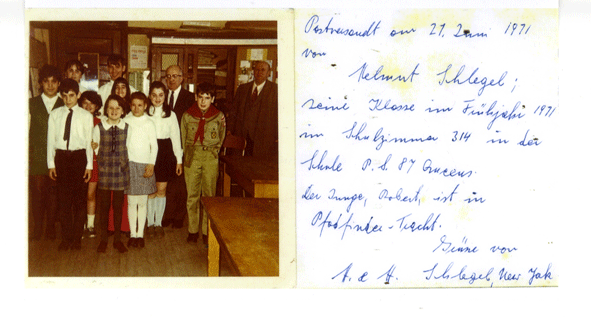 Postversandt am 21. Juni 1971
von
Helmut Schlegel;
seine Klasse im Frühjahr 1971
im Schulzimmer 314 in der
Schule P.S. 87 Queens.
Der Junge, Robert, ist in
Pfadfinder-Tracht.
Grüße von
A. & H. Schlegel, New York